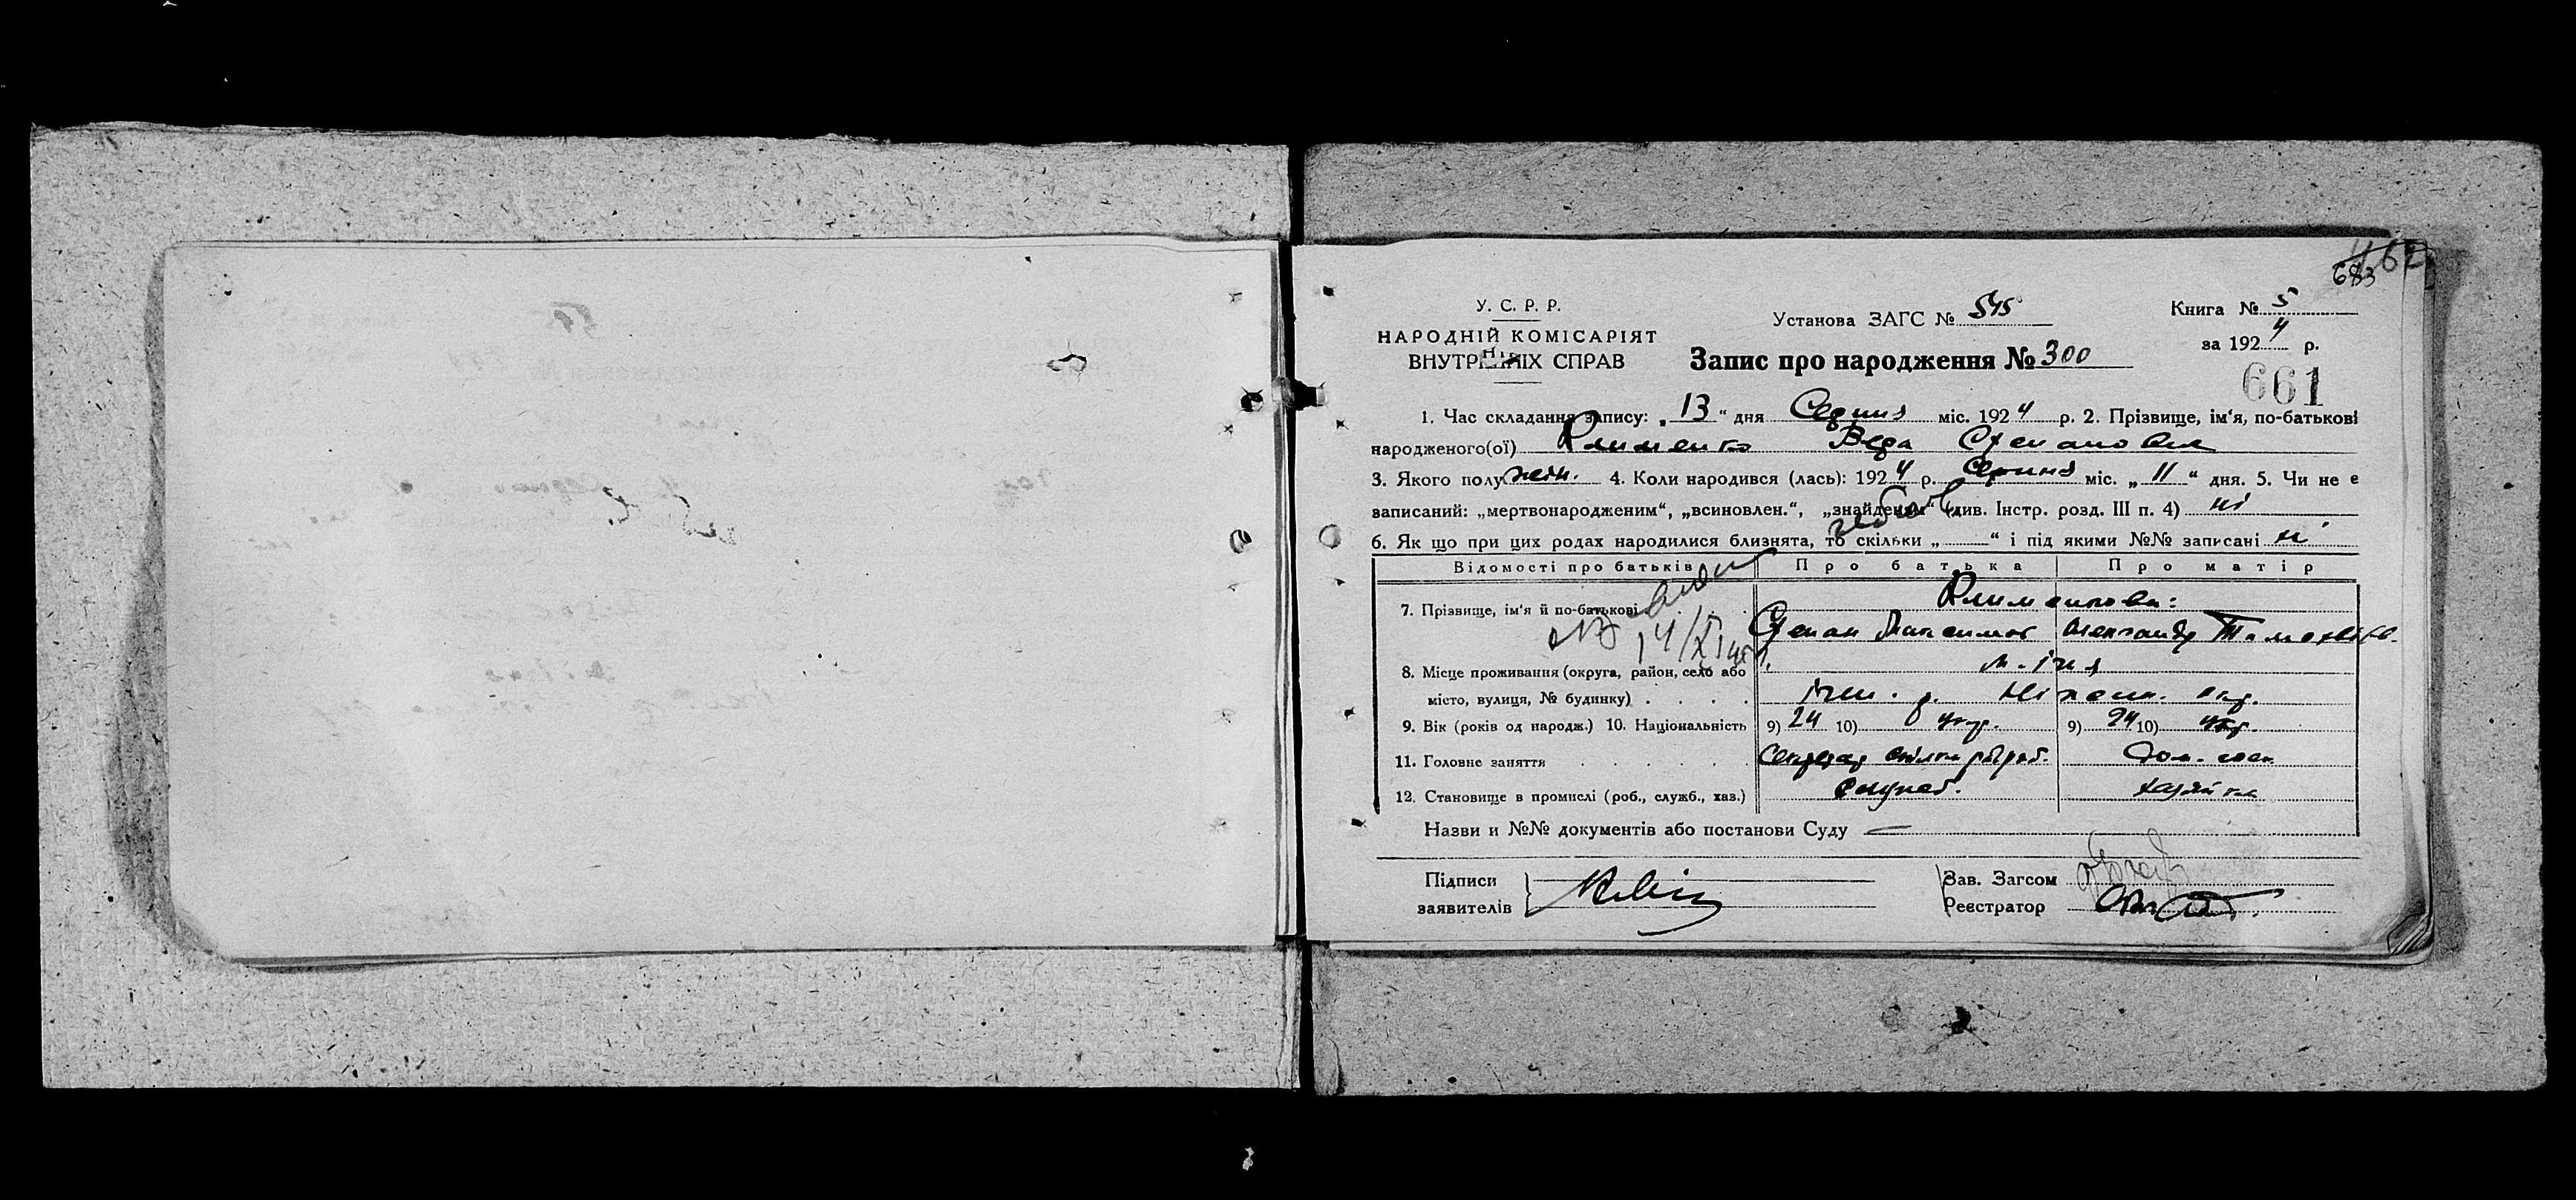 683
У. С. Р. Р.
НАРОДНІЙ КОМІСАРІЯТ
ВНУТРІШНІХ СПРАВ
Установа ЗАГС № 545
Книга № 5
за 1924 р.
Запис про народження № 300
661
1. Час складання запису: „13“ дня Серпня міс. 1924 р. 2. Прізвище, ім'я, по-батькові
народженого(ої) Клименко Вера Степановна
3. Якого полу жін. 4. Коли народився (лась): 1924 р. Серпня міс. „11“ дня. 5. Чи не є
записаний: „мертвонародженим“, „всиновлен.“, „знайденим“ (див. Інстр. розд. III п. 4) ні
6. Як що при цих родах народилися близнята, то скільки „ “ і під якими №№ записані ні
Відомості про батьків Про батька Про матір
7. Прізвище, ім'я й по-батькові Клименкови:
Степан Максимов Олександр
14/XI
8. Місце проживання (округа, район, село або м. Ічня
місто, вулиця, № будинку) Ічн. р. Ніжен. окр.
9. Вік (років од народж.) 10. Національність 9) 24 10) укр. 9) 24 10) укр.
11. Головне заняття Секретар Дом. госп.
12. Становище в промислі (роб., служб., хаз.) служб. хазяйка
Назви и №№ документів або постанови Суду —
Підписи
заявителів
Зав. Загсом
Реєстратор